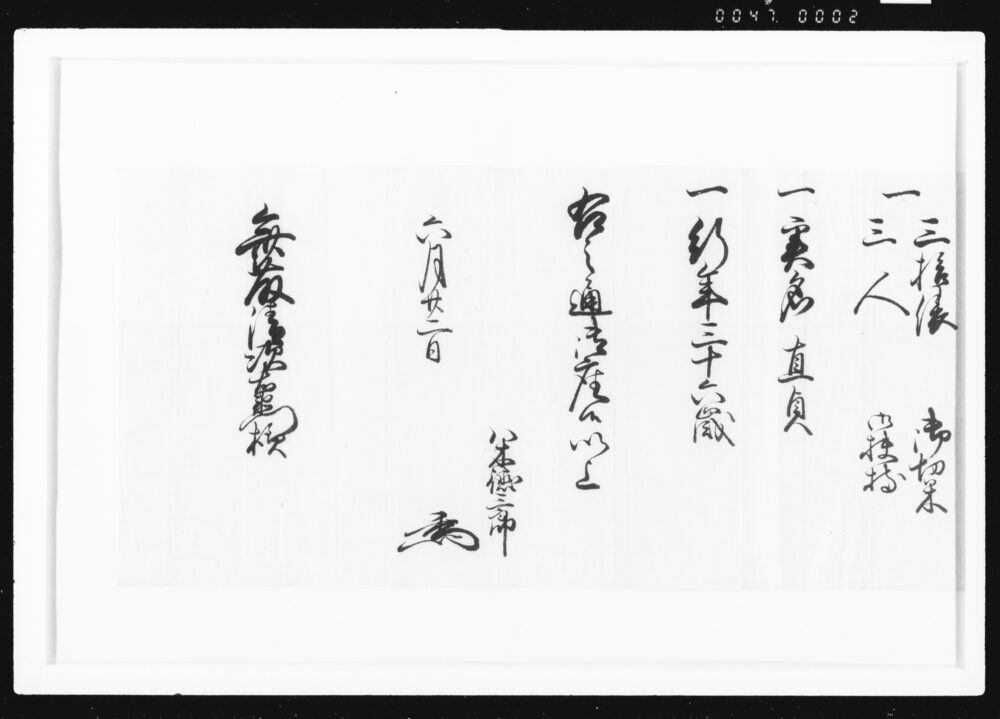 0047.0002
一 三拾俵 御切米
三人 御扶持
一 実名 直貞
一 行年三十六歳
右之通御座候以上
八木徳三郎
六月廿二日
無藤清次右衛門様